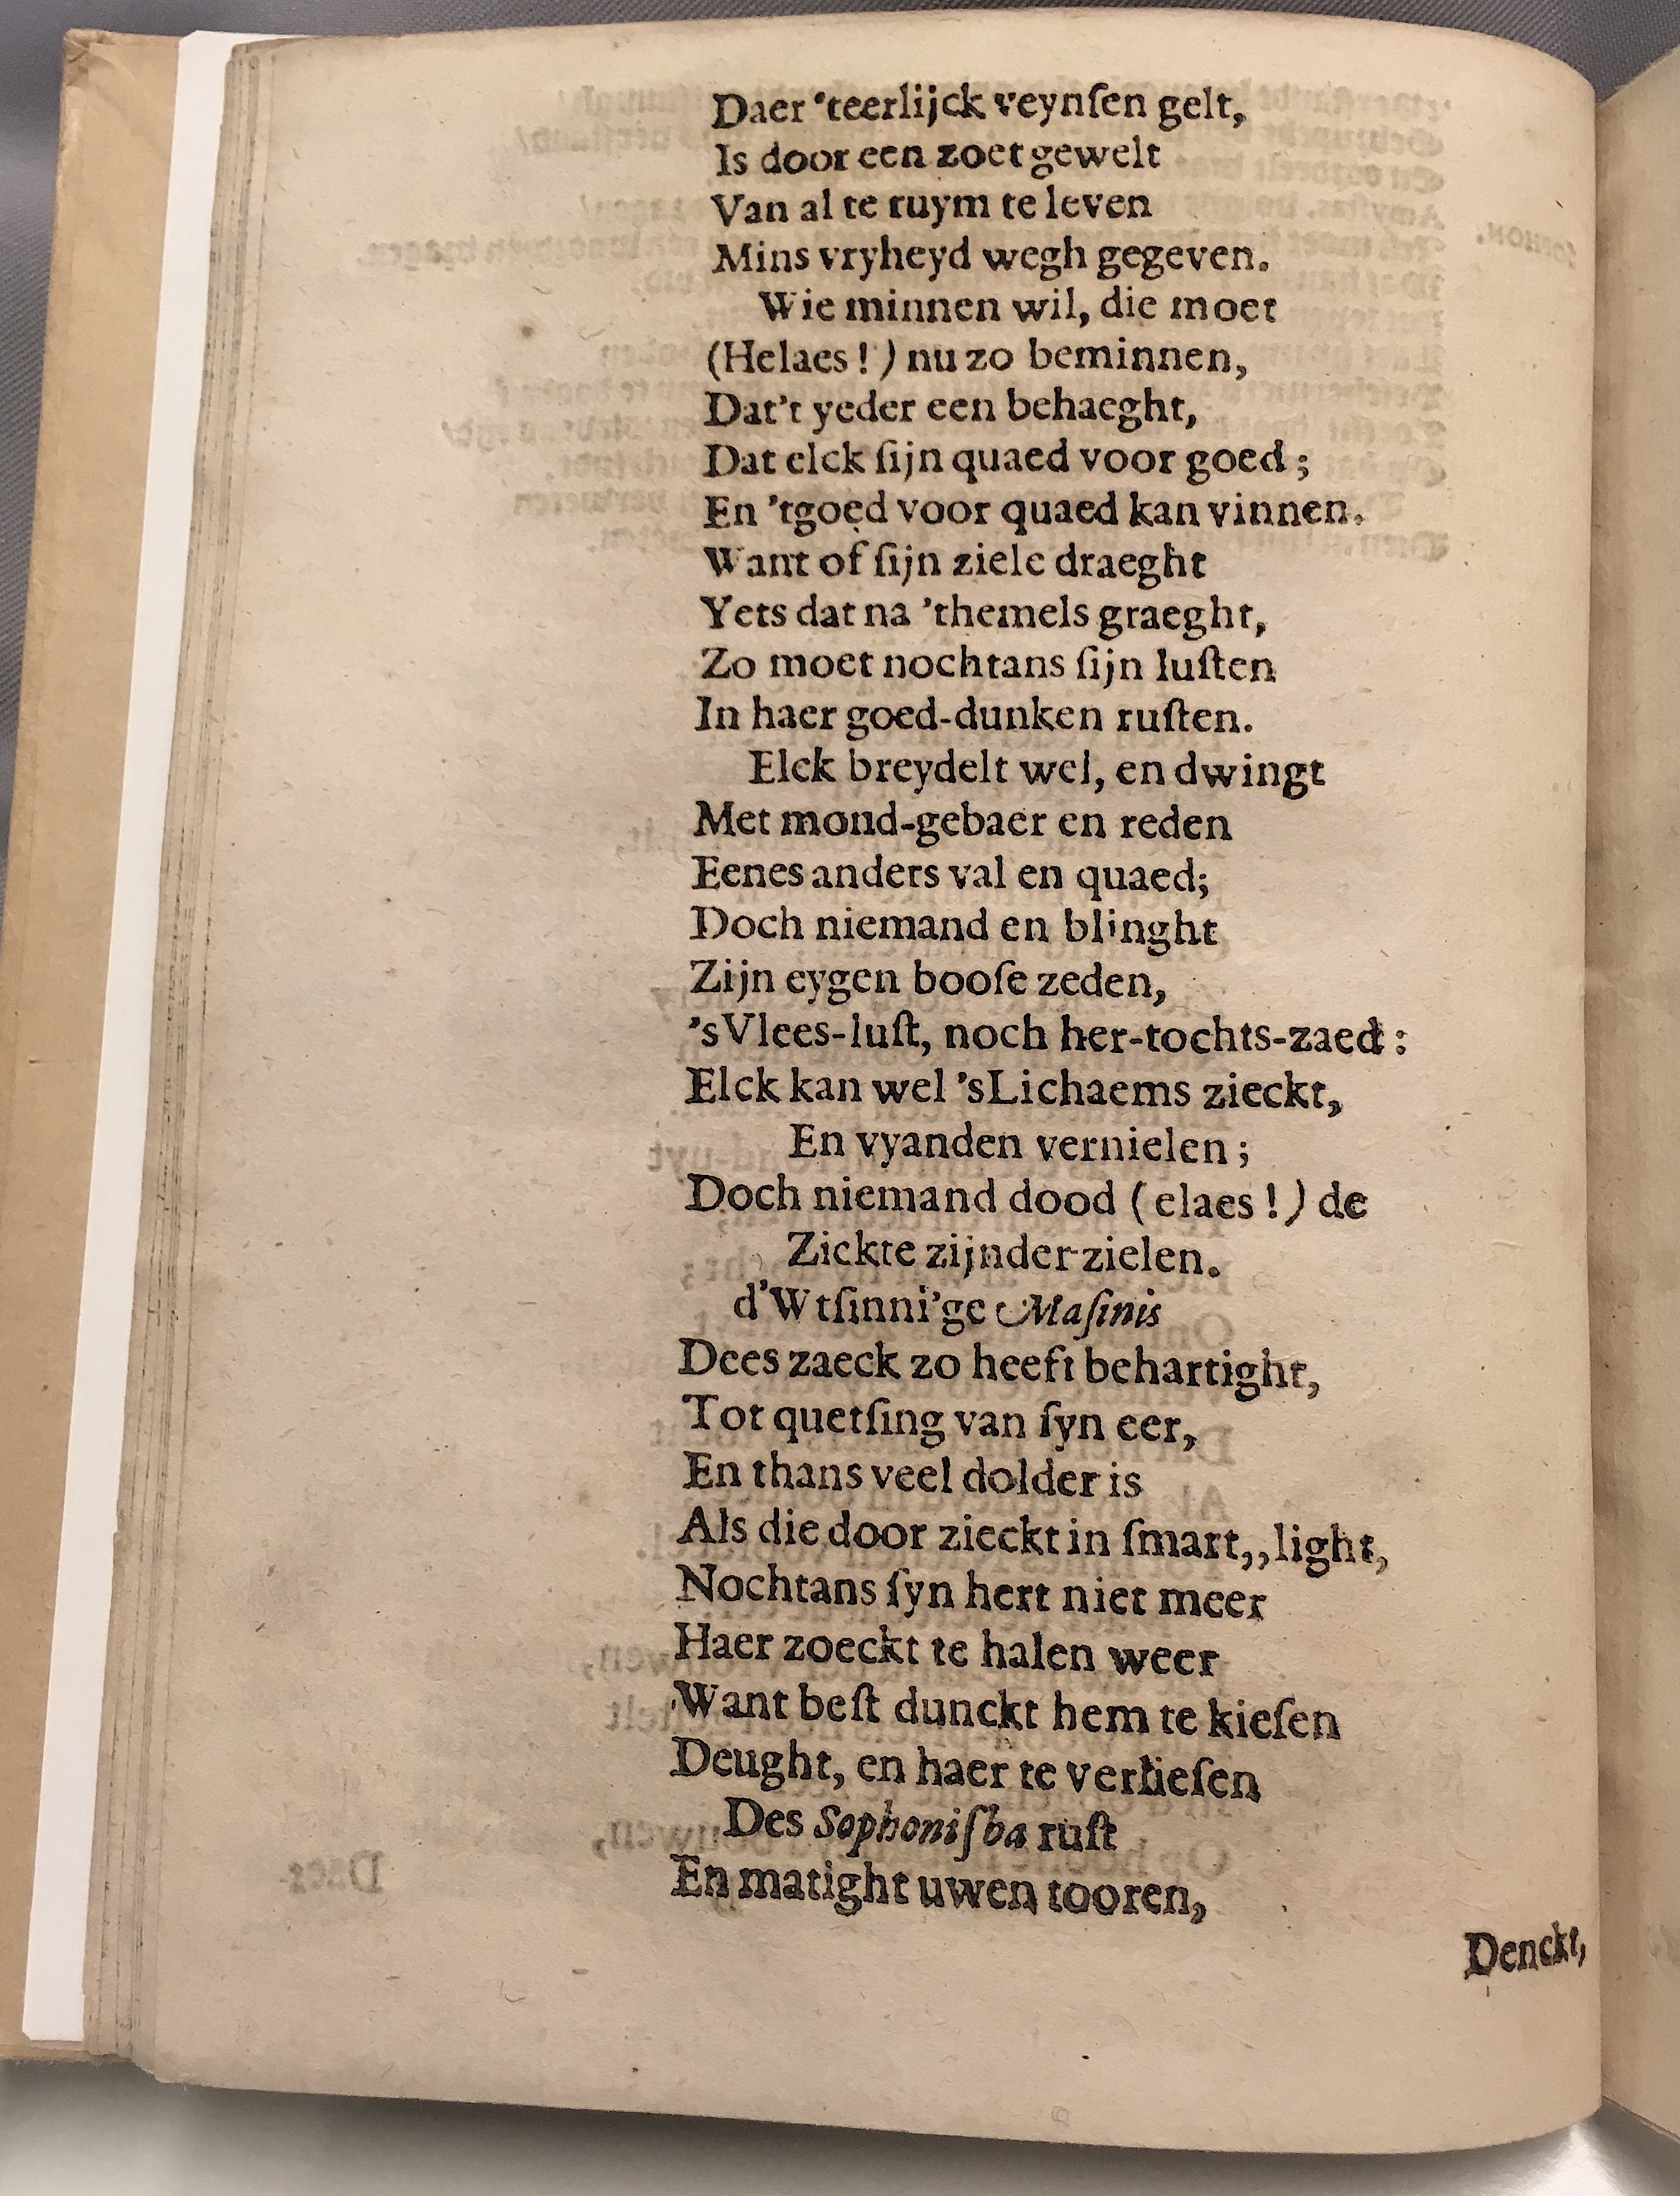 Daer 'teerlijck veynſen gelt,
Is door een zoet gewelt
Van al te ruym te leven
Mins vryheyd wegh gegeven.
Wie minnen wil, die moet
(Helaes!) nu zo beminnen,
Dat't yeder een behaeght,
Dat elck ſijn quaed voor goed;
En 'tgoed voor quaed kan vinnen.
Want of ſijn ziele draeght
Yets dat na 'themels graeght,
Zo moet nochtans ſijn luſten
In haer goed-dunken ruſten.
Elck breydelt wel, en dwingt
Met mond-gebaer en reden
Eenes anders val en quaed;
Doch niemand en blinght
Zijn eygen booſe zeden,
'sVlees-luſt, noch her-tochts-zaed:
Elck kan wel 'sLichaems zieckt,
En vyanden vernielen;
Doch niemand dood (elaes!) de
Zickte zijnder zielen.
d'Wtſinni'ge Maſinis
Dees zaeck zo heeft behartight,
Tot quetſing van ſyn eer,
En thans veel dolder is
Als die door zieckt in ſmart,,light,
Nochtans ſyn hert niet meer
Haer zoeckt te halen weer
Want beſt dunckt hem te kieſen
Deught, en haer te verlieſen
Des Sophoniſba ruſt
En matight uwen tooren,
Denckt,